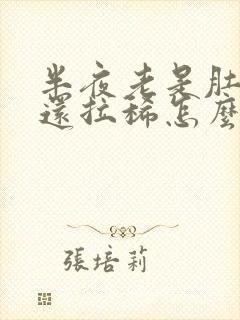 半夜老是肚
還拉稀怎麼
張培莉